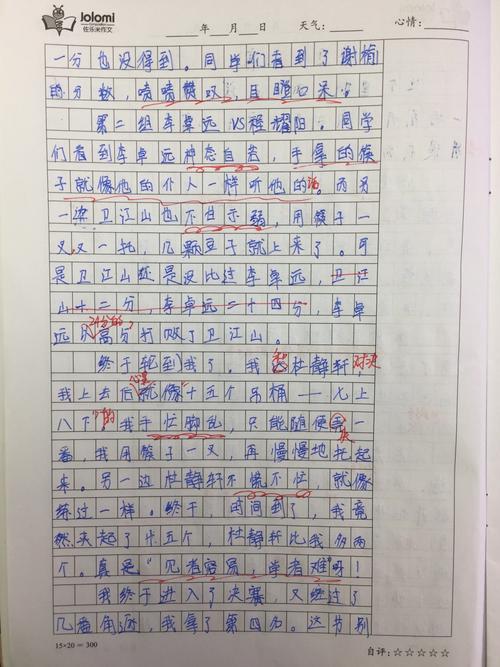 Jolomi
佐乐米作文
年 月 日 天气: 心情:
一分也没得到。同学们看到了谢楠
的分数,啧啧赞叹,目瞪口呆。
第二组李卓远VS程耀阳。同学
们看到李卓远神态自若,手里的筷
子就像他的仆人一样听他的话。而另
一边卫江山也不甘示弱,用筷子一
叉又一托,几颗豆子就上来了。可
是卫江山还是没比过李卓远,卫江
山十二分,李卓远二十四分,李卓
远以24分的高分打败了卫江山。
终于轮到我了。我和杜静轩对决
我上去后心里就像“十五个吊桶——七上
八下”的。我手忙脚乱,只能随便夹一
番,我用筷子一叉,再慢慢地托起
来。另一边杜静轩不慌不忙,就像
练过一样。终于,时间到了,我竟
然夹起了十五个,杜静轩比我多两
个。真是“见者容易,学者难”呀!
我终于进入了决赛,又经过了
几番角逐,我得了第四名。这节别
15×20=300
自评:☆☆☆☆☆